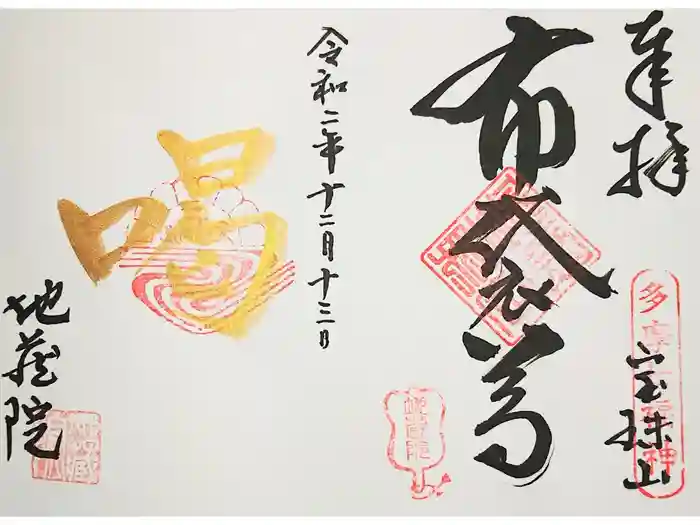 奉拝
多摩七福神
宝珠山
布袋尊
地蔵院
令和二年十二月十三日
喝
地蔵院